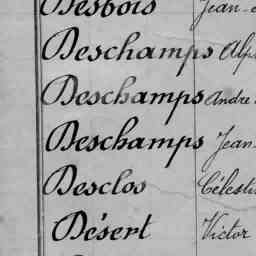 Desbois Jean-
Deschamps Alp
Deschamps André
Deschamps Jean
Desclos Célesti
Désert Victor